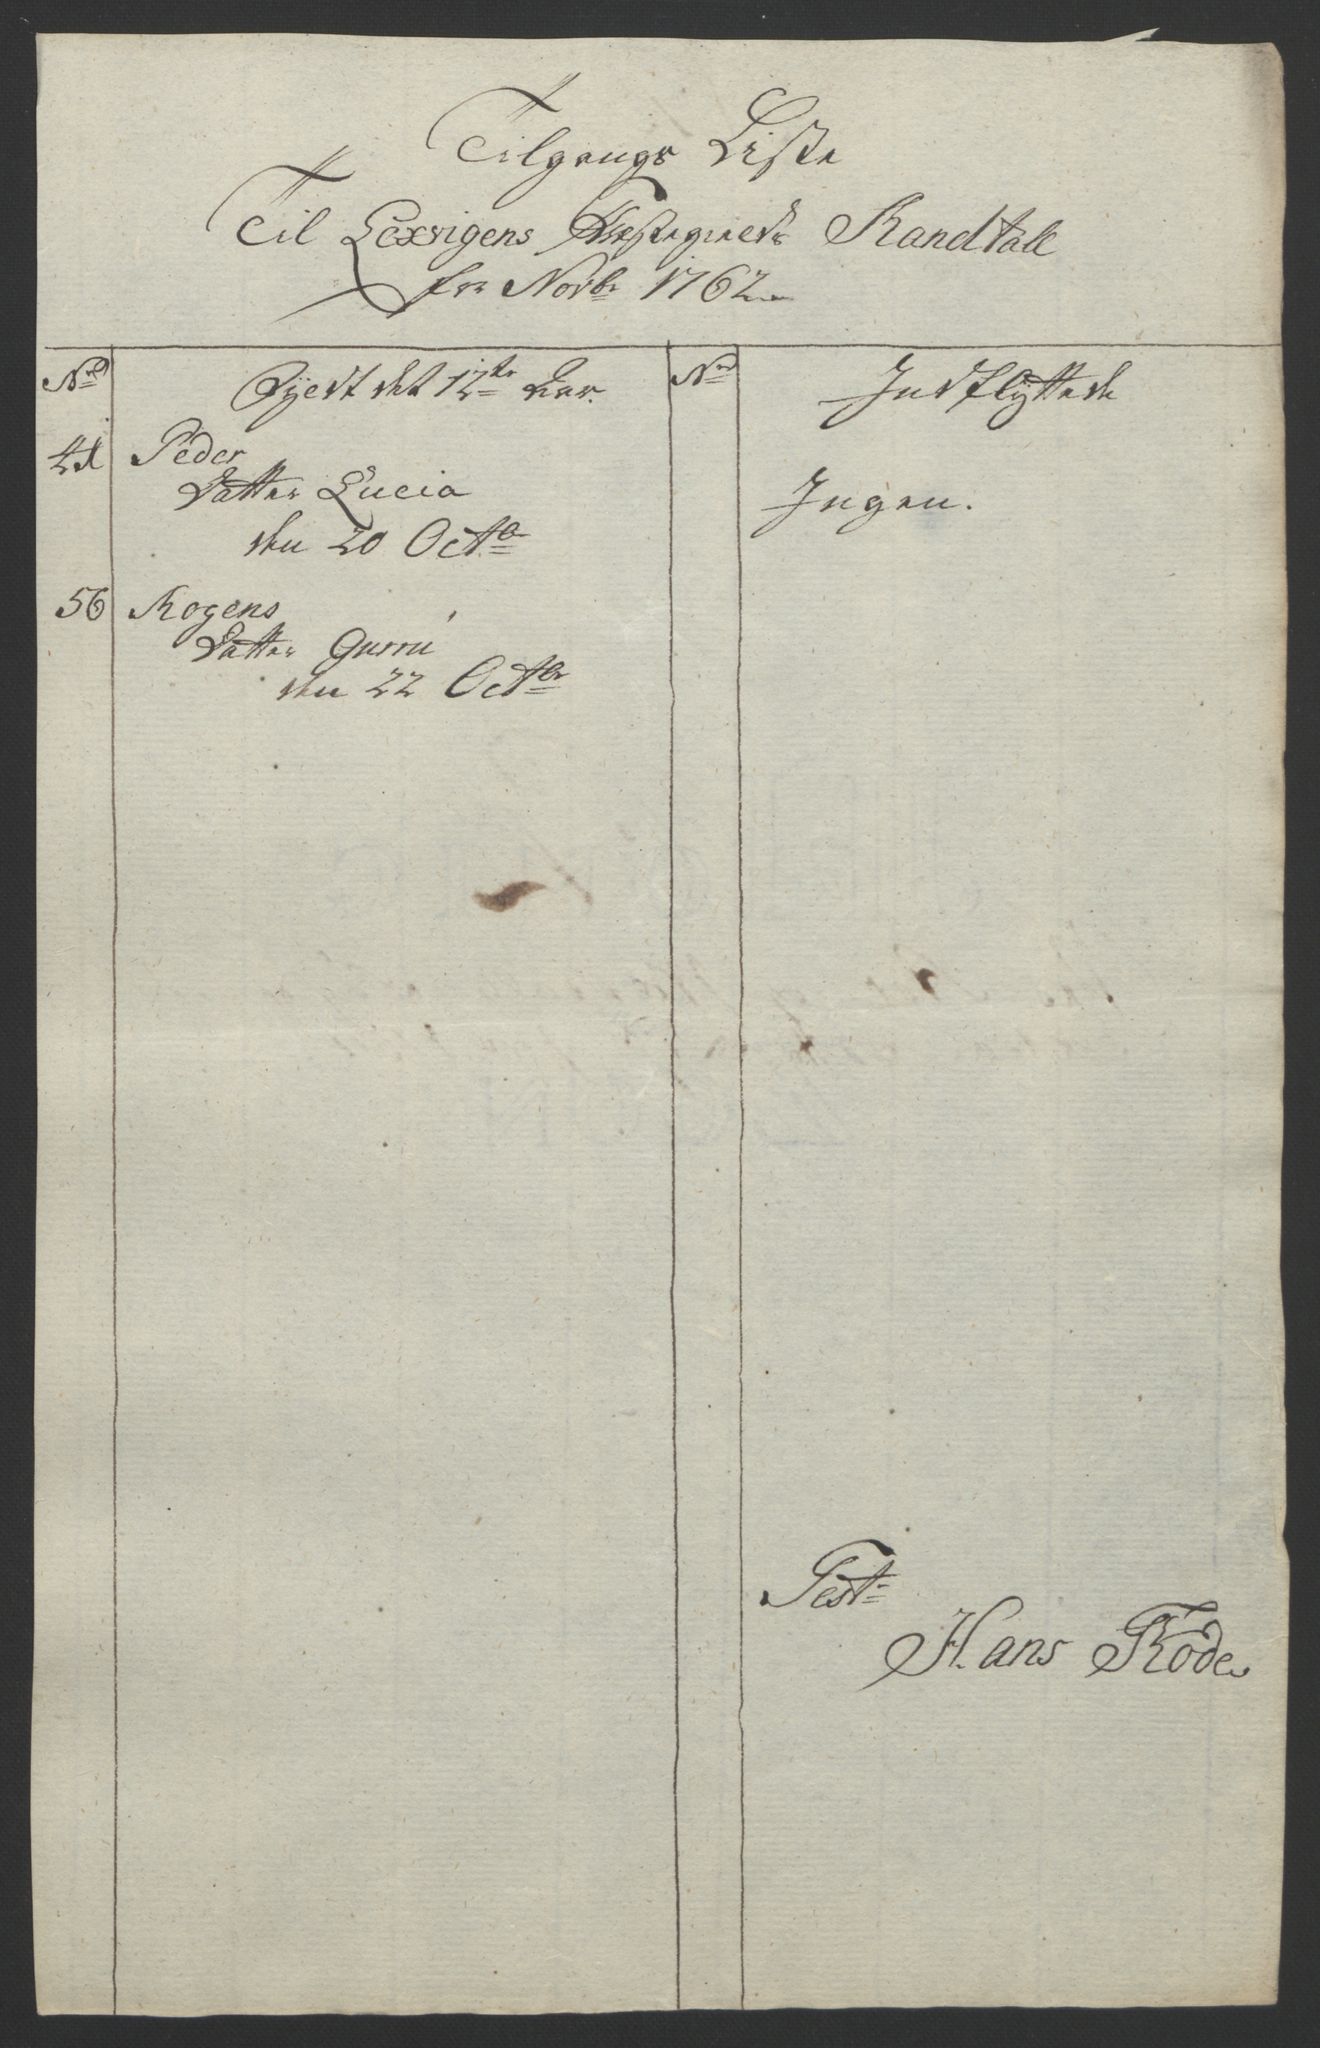 Tilgangs Liste
Til Lexvigens Præstegields Mandtall
for Novbr 1762
No
Fyldt det 12te Aar.
No
Indflyttede
41 Peder
Datter Lucia
den 20 Octbr
Ingen.
56 Mogens
Datter Gurru
den 22 Octbr
Test:
Hans Rode